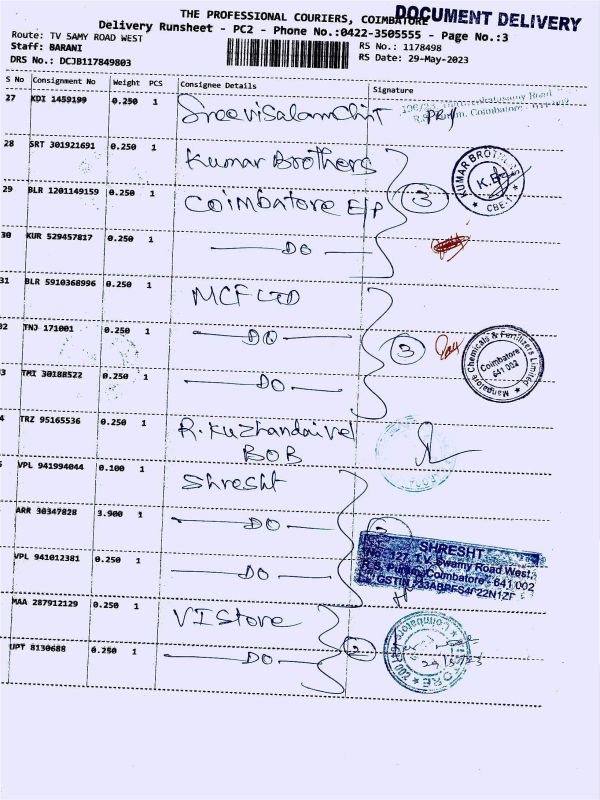 THE PROFESSIONAL COURIERS, COIMBATORE
DOCUMENT DELIVERY
Delivery Runsheet - PC2 - Phone No.:0422-3505555 - Page No.:3
Route: TV SAMY ROAD WEST
Staff: BARANI
DRS No.: DCJB117849803
RS No.: 1178498
RS Date: 29-May-2023
S No Consignment No Weight PCS Consignee Details Signature
27 KDI 1459199 0.250 1 Sreevisalamchit
R.S. Puram, Coimbatore
28 SRT 301921691 0.250 1 Kumar Brothers
KUMAR BROTHERS
CBE-1
29 BLR 1201149159 0.250 1 Coimbatore E/P 3
30 KUR 529457817 0.250 1 DO
31 BLR 5910368996 0.250 1 MCF LTD
32 TNJ 171001 0.250 1 DO 3
Mangalore Chemicals & Fertilizers Limited
Coimbatore
641 002
3 TMI 30188522 0.250 1 DO
4 TRZ 95165536 0.250 1 R. Kuzhandaivel
BOB
VPL 941994044 0.100 1 Shresht
ARR 30347828 3.900 1 DO
SHRESHT
No. 127, T.V. Swamy Road West,
R.S. Puram, Coimbatore - 641 002
GSTIN
VPL 941012381 0.250 1 DO
MAA 287912129 0.250 1 VI Store
UPT 8130688 0.250 1 DO 2
29/5/23